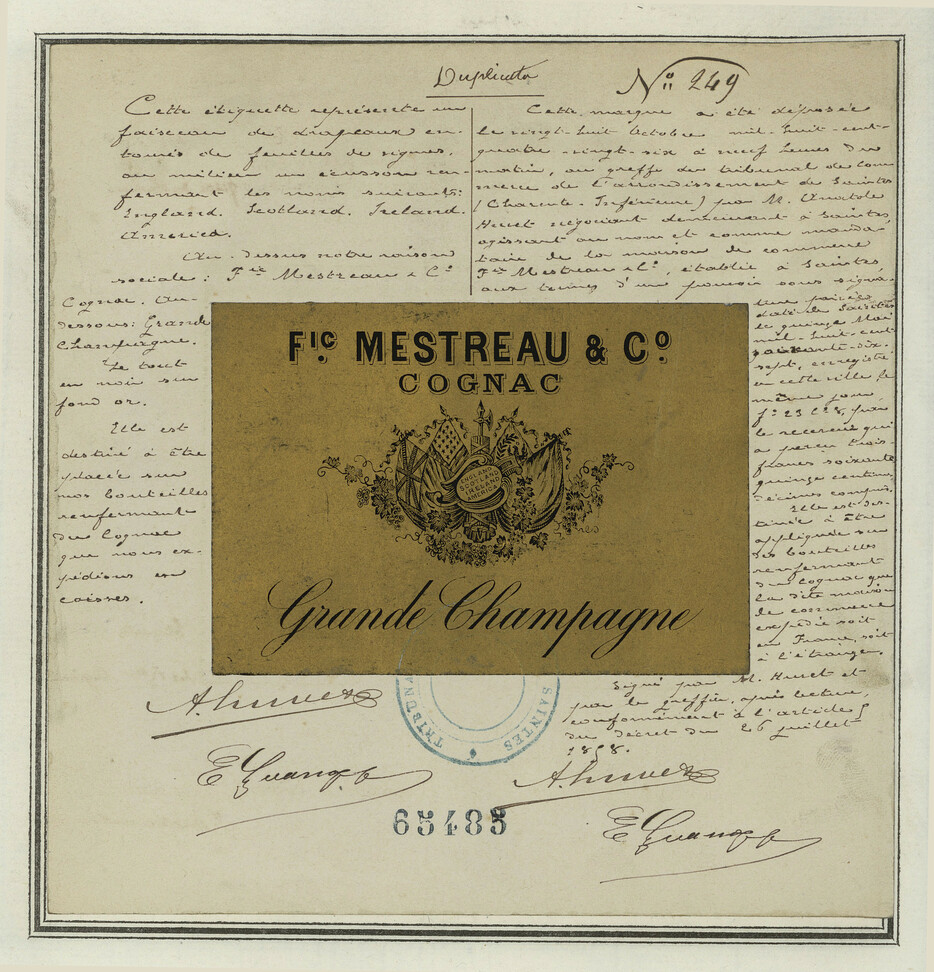 Duplicata
N° 249
Cette étiquette représente un
faisceau de drapeaux en-
tourés de feuilles de vignes,
au milieu un écusson ren-
fermant les noms suivants:
England. Scotland. Ireland.
America.
Au-dessus notre raison
sociale: Fic Mestreau & Co
Cognac. Au-
dessous: Grande
Champagne.
Le tout
en noir sur
fond or.
Elle est
destinée à être
placée sur
nos bouteilles
renfermant
du Cognac
que nous ex-
pédions en
caisses.
Cette marque a été déposée
le vingt-huit Octobre mil-huit-cent-
quatre-vingt-six à neuf heures du
matin, au greffe du tribunal de com
merce de l'arrondissement de Saintes
(Charente-Inférieure) par M. Anatole
Huret négociant demeurant à Saintes,
agissant au nom et comme manda-
taire de la maison de commerce
Fic Mestreau & Co, établie à Saintes,
aux termes d'un pouvoir sous signa-
ture privée
daté de Saintes
le quinze Mai
mil-huit-cent
soixante-dix-
sept, enregistré
en cette ville le
même jour,
fo 23 C 8, par
le receveur qui
a perçu trois
francs soixante
quinze centimes
décimes compris.
Elle est des-
tinée à être
appliquée sur
des bouteilles
renfermant
du cognac que
la dite maison
de commerce
expédie soit
en France, soit
à l'étranger.
Signé par M. Huret et
par le greffier, après lecture,
conformément à l'article 5
du décret du 26 juillet
1858.
Fic MESTREAU & Co
COGNAC
ENGLAND
SCOTLAND
IRELAND
AMERICA
Grande Champagne
TRIBUNA
SAINTES
65485